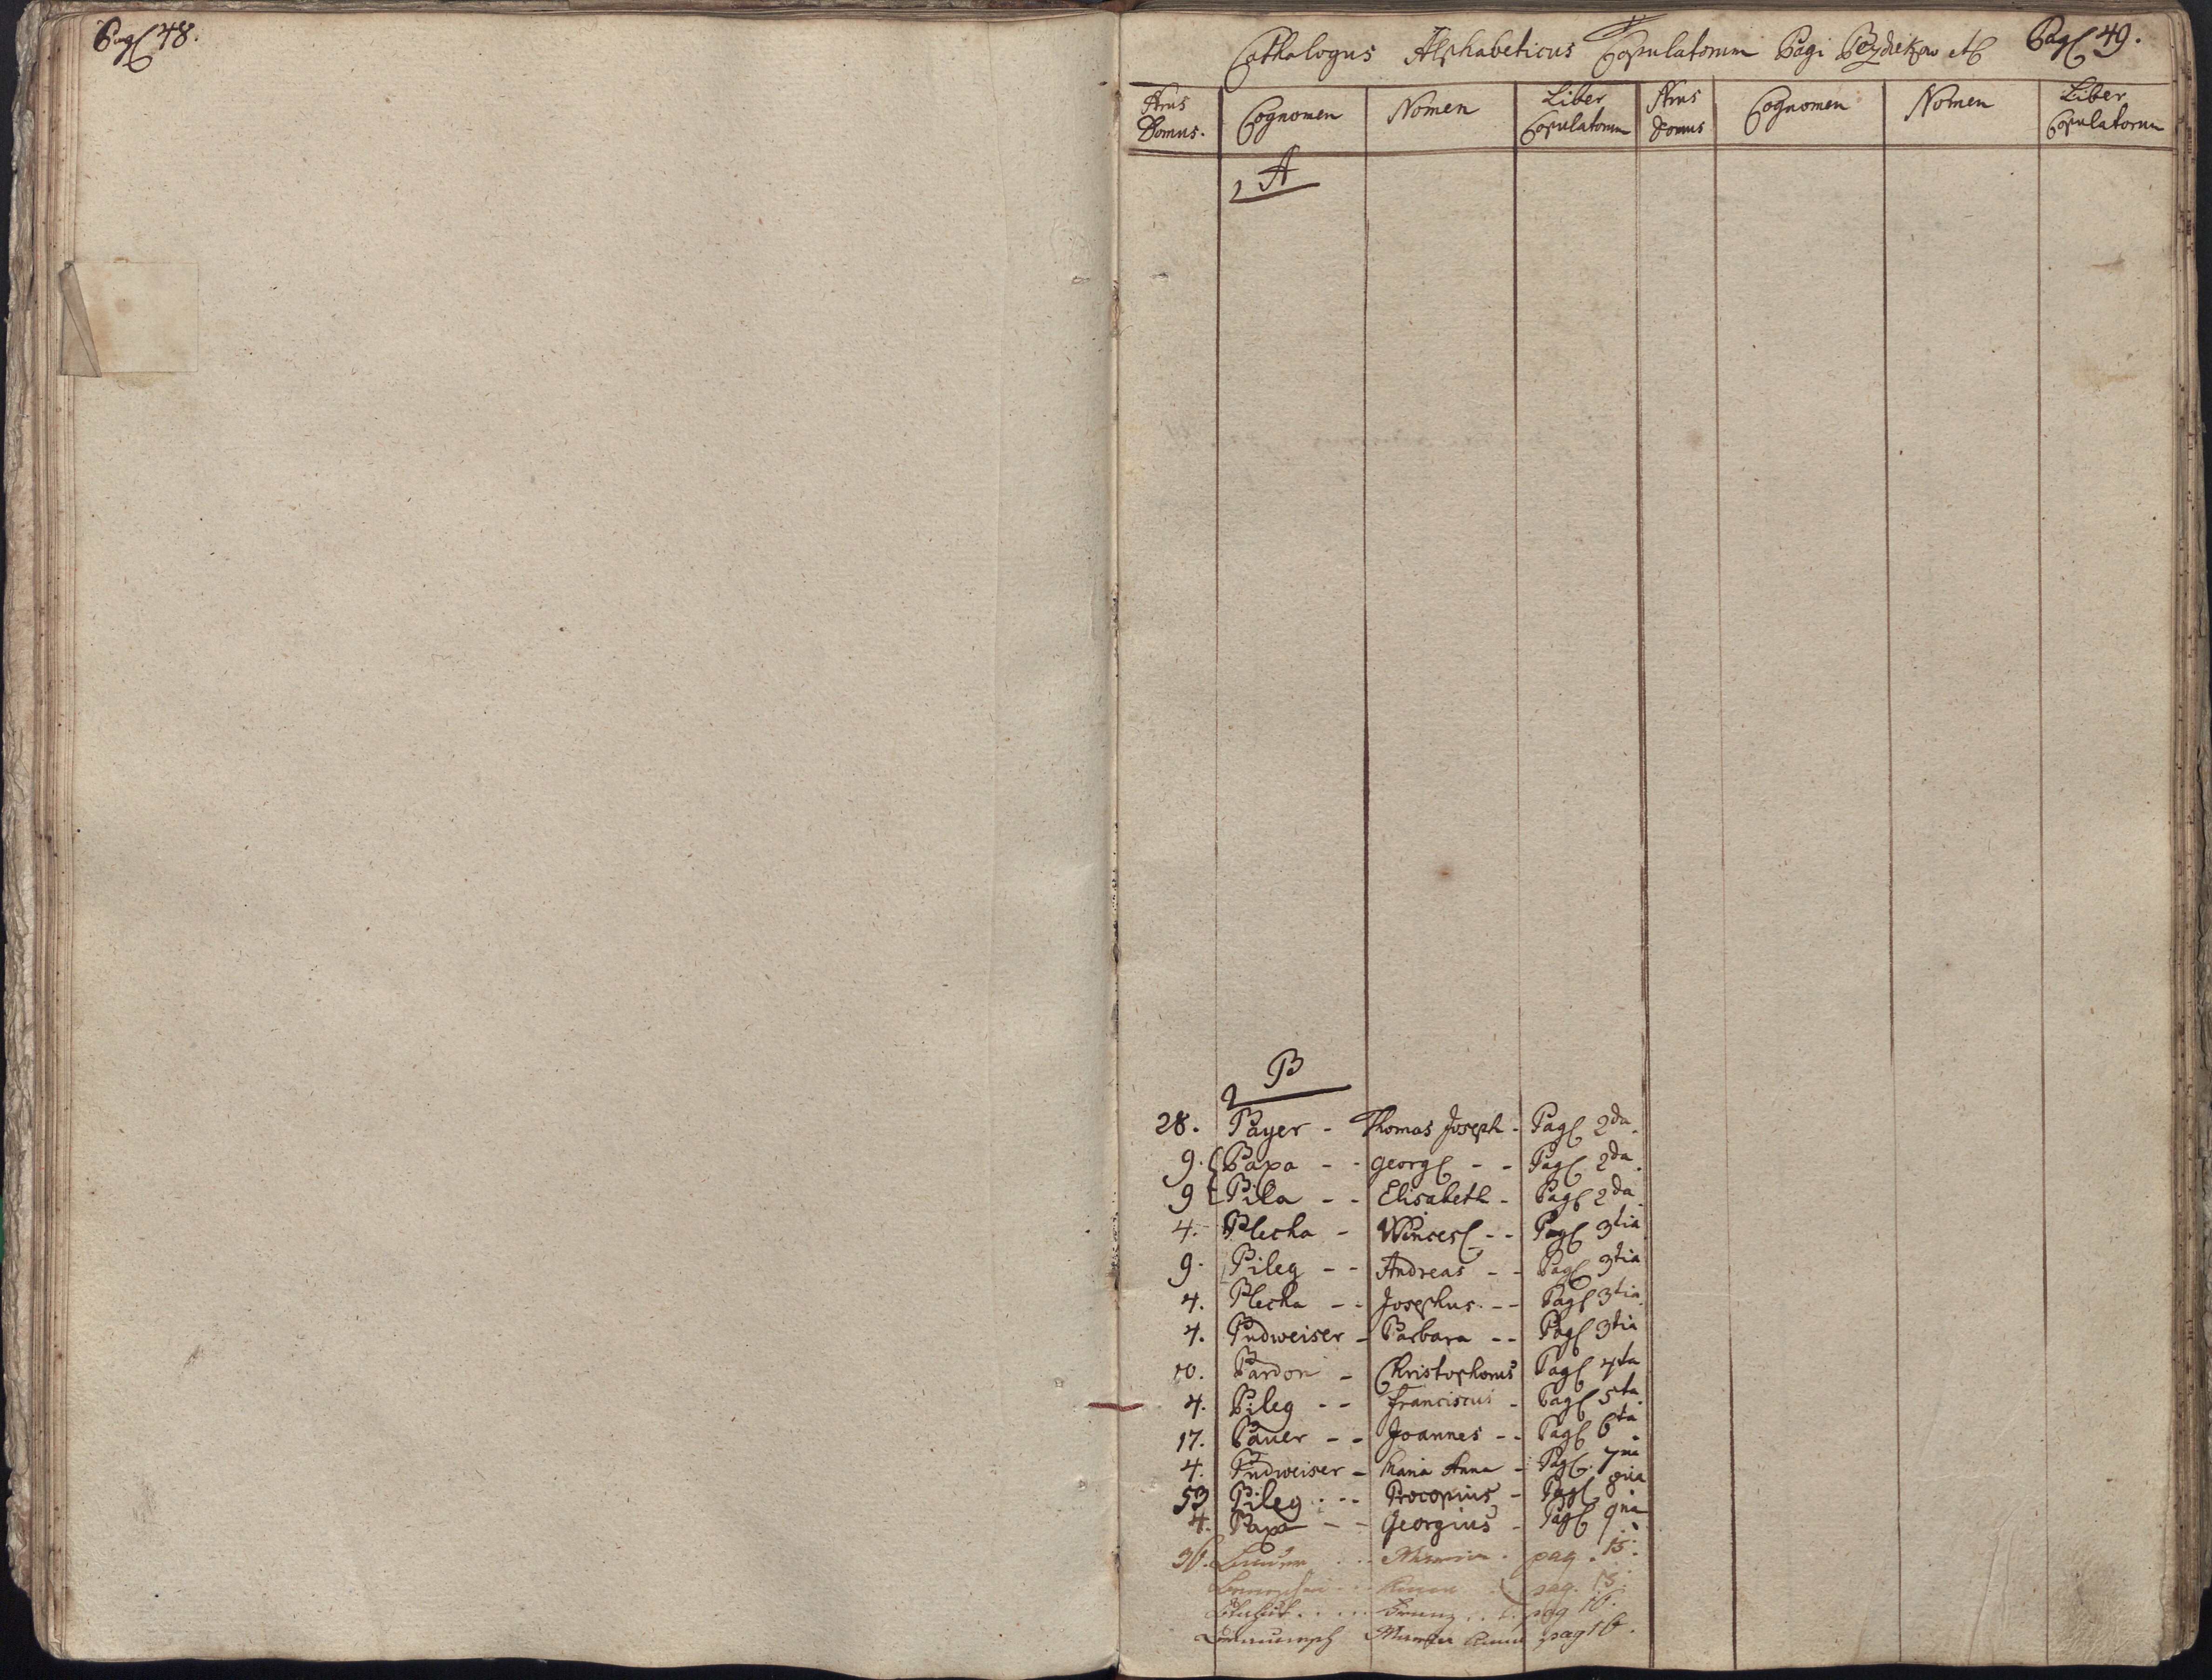 Pag 48.
Cathalogus Alphabeticus Copulatorum Pagi Pag 49.
Nrus Domus. Cognomen Nomen Liber Copulatorum Nrus Domus Cognomen Nomen Liber Copulatorum
A
B
28. Bayer - Thomas Joseph - Pag 2da.
9. Baxa - - Georg - - Pag 2da.
9 Bila - - Elisabeth - Pag 2da.
4. Blecha - Wences - - Pag 3tia
9. Bileg - - Andreas - - Pag 3tia
4. Blecha - - Josephus - - Pag 3tia.
4. Budweiser - Barbara - - Pag 3tia
10. Bardon - Christophorus Pag 4ta
4. Bileg - - Franciscus - Pag 5ta.
17. Bauer - - Joannes - - Pag 6ta.
4. Budweiser - Maria Anna - Pag 7ma
53 Bileg - - Procopius - Pag 8va
4. Baxa - - Georgius - Pag 9na.
36. pag. 15.
pag. 15.
Franz pag 16.
Anna pag 16.